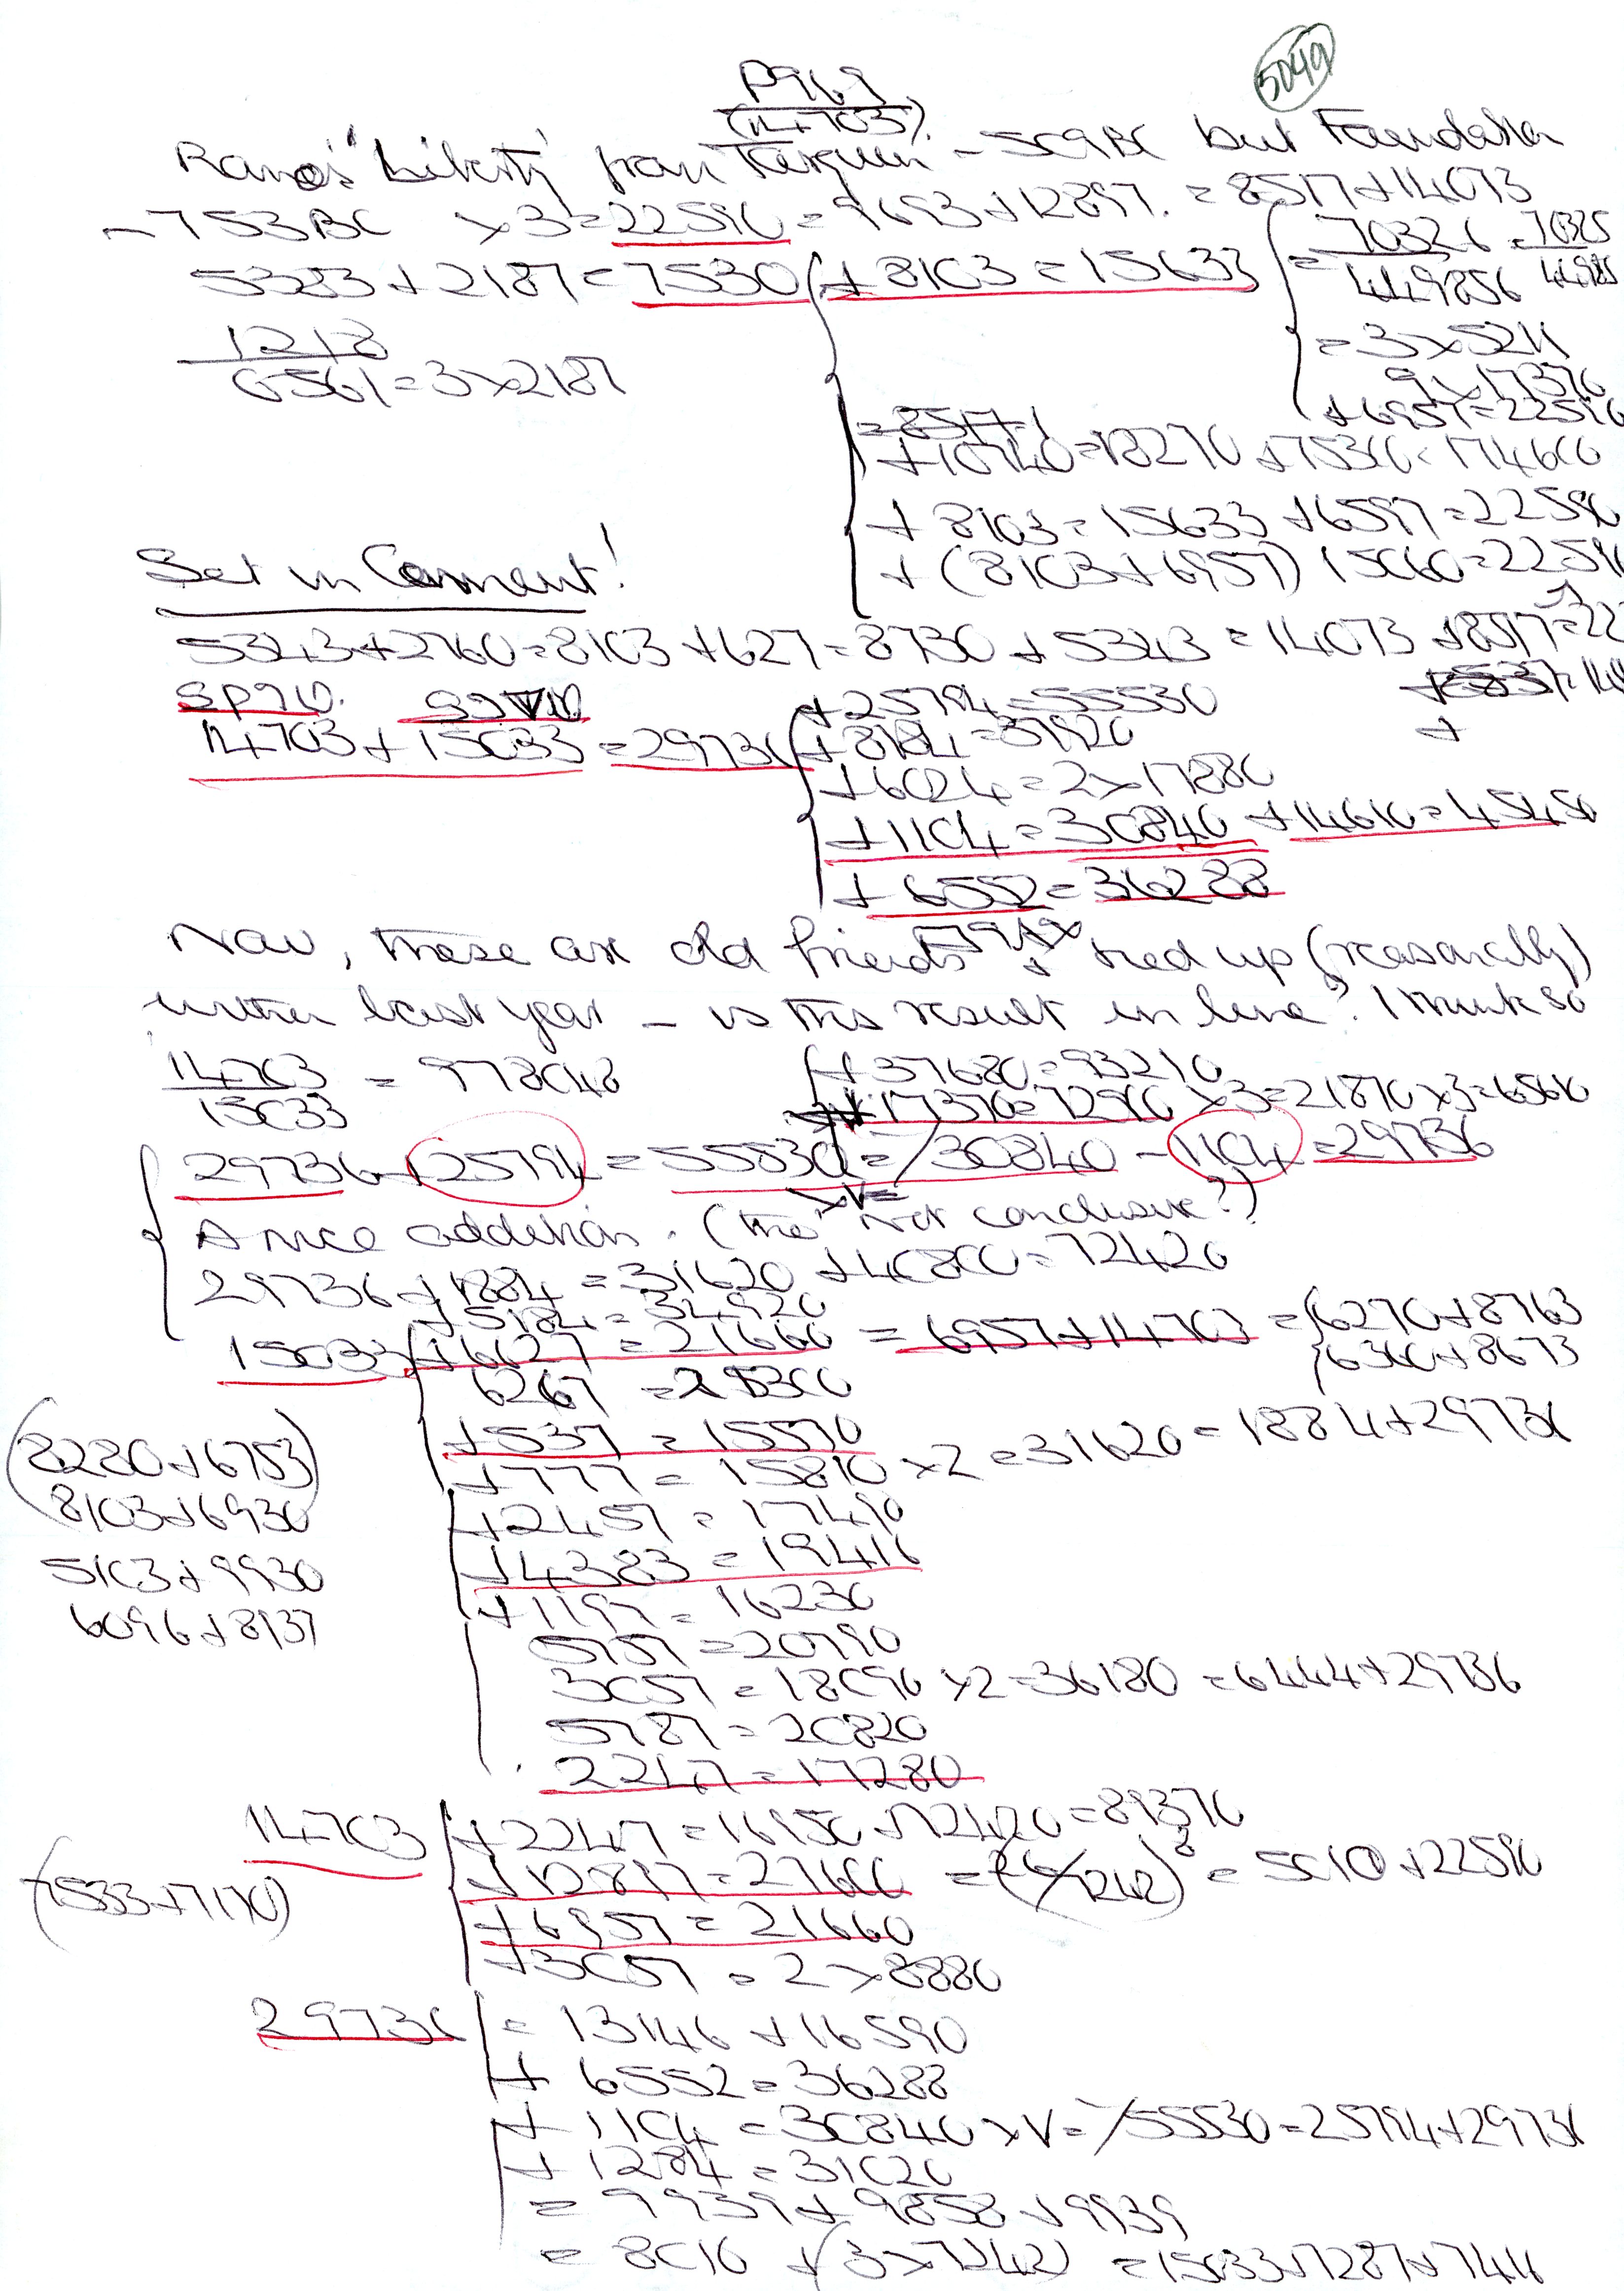 5049
P969
(14703).
Rome's "Liberty" from Tarquin - 509BC but Foundation
- 753BC x3 = 22590 = 9693 + 12897. = 8517 + 14073
5383 + 2187 = 7530 + 8103 = 15633
= 70326 = 70325
449856
1218
6561 = 3x2187
= 3x5211
9x17370
+ 6957 = 22590
+ 10740 = 18270 + 75300 = 174600
+ 8103 = 15633 + 6597 = 22590
+ (8103 + 6957) 15060 = 22590
Set in Cement!
5343 + 2760 = 8103 + 627 = 8730 + 5343 = 14073 + 8517 =
SP910.
14703 + 15033 = 29736
+ 25794 = 55530
+ 8184 = 37920
+ 6024 = 2x17880
+ 1104 = 30840 + 14610 = 45450
+ 6552 = 36288
Now, these are old friends + tied up (reasonably)
within last year - is this result in line? I think so
14703
15033
= 978048
+ 37680 = 93210
+ 17370 = 72900 x3 = 21870 x3 = 65610
29736 + 25794 = 55830 = 30840 - 1104 = 29736
A nice addition. (tho' not conclusive?)
29736 + 1884 = 31620 + 40800 = 72420
+ 5184 = 34920
15033 + 6627 = 21660 = 6957 + 14703 = 6270 + 8763
6360 + 8673
6267 = 21300
+ 537 = 15570
+ 777 = 15810 x2 = 31620 = 1884 + 29736
(8280 + 6753)
8103 + 6930
5103 + 9930
6096 + 8937
+ 2457 = 17490
+ 4383 = 19416
+ 1197 = 16230
5757 = 20790
3057 = 18090 x2 = 36180 = 6444 + 29736
5787 = 20820
2247 = 17280
14703 + 2247 = 16950 + 72420 = 89370
(7533 + 7170)
+ 12897 = 27600 = = 5010 + 22590
+ 6957 = 21660
+ 3057 = 2 x 8880
29736 = 13146 + 16590
+ 6552 = 36288
+ 1104 = 30840 x V = /55530 = 25794 + 29736
+ 1284 = 31020
= 9939 + 9858 + 9939
= 8010 + (3 x 7242) = 15033 + 7287 + 7416